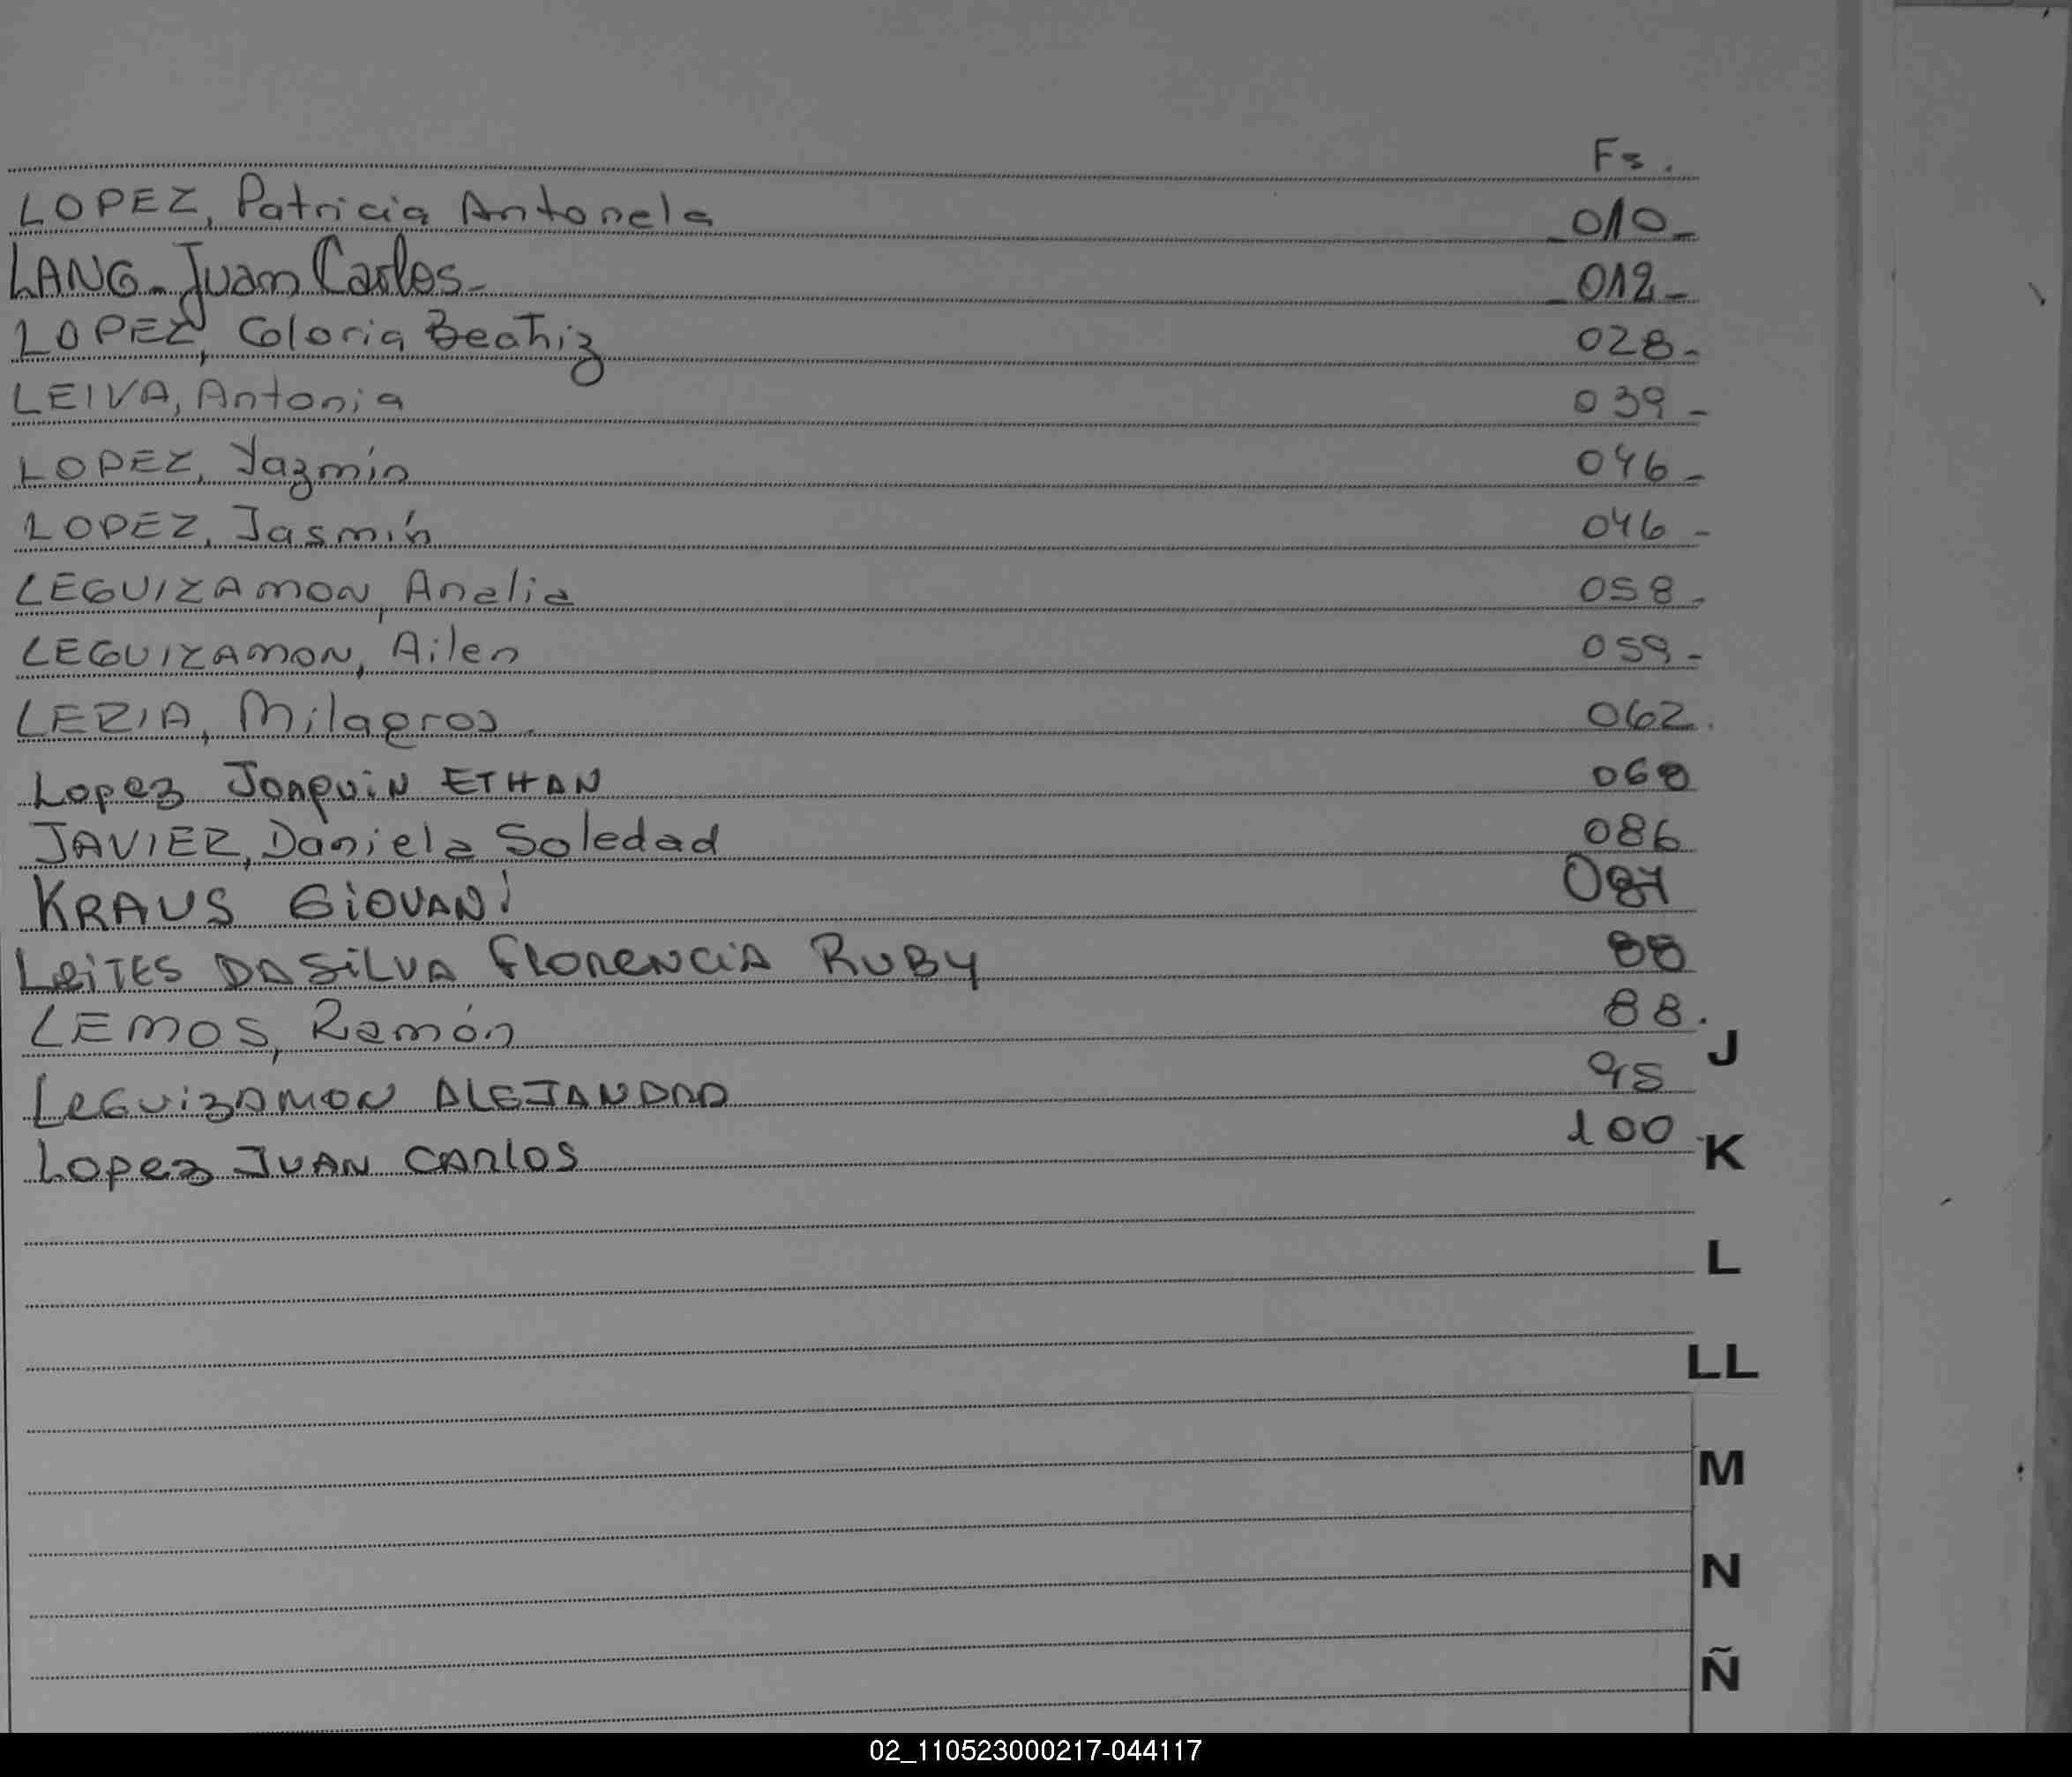 Fs.
LOPEZ, Patricia Antonela _010_
LANG- Juan Carlos- _012_
LOPEZ, Gloria Beatriz 028-
LEIVA, Antonia 039-
LOPEZ, Yazmín 046-
LOPEZ, Jasmín 046-
LEGUIZAMON, Analia 058-
LEGUIZAMON, Ailen 059-
LERIA, Milagros. 062.
Lopez Joaquin ETHAN 068
JAVIER, Daniela Soledad 086
KRAUS GiOVANi 087
LeiTES DA SiLVA FlORENCiA RUBY 88
LEMOS, Ramón 88.
J
LeGuizAMON ALEJANDRO 95
Lopez JUAN CARlOS 100
K
L
LL
M
N
Ñ
02_110523000217-044117